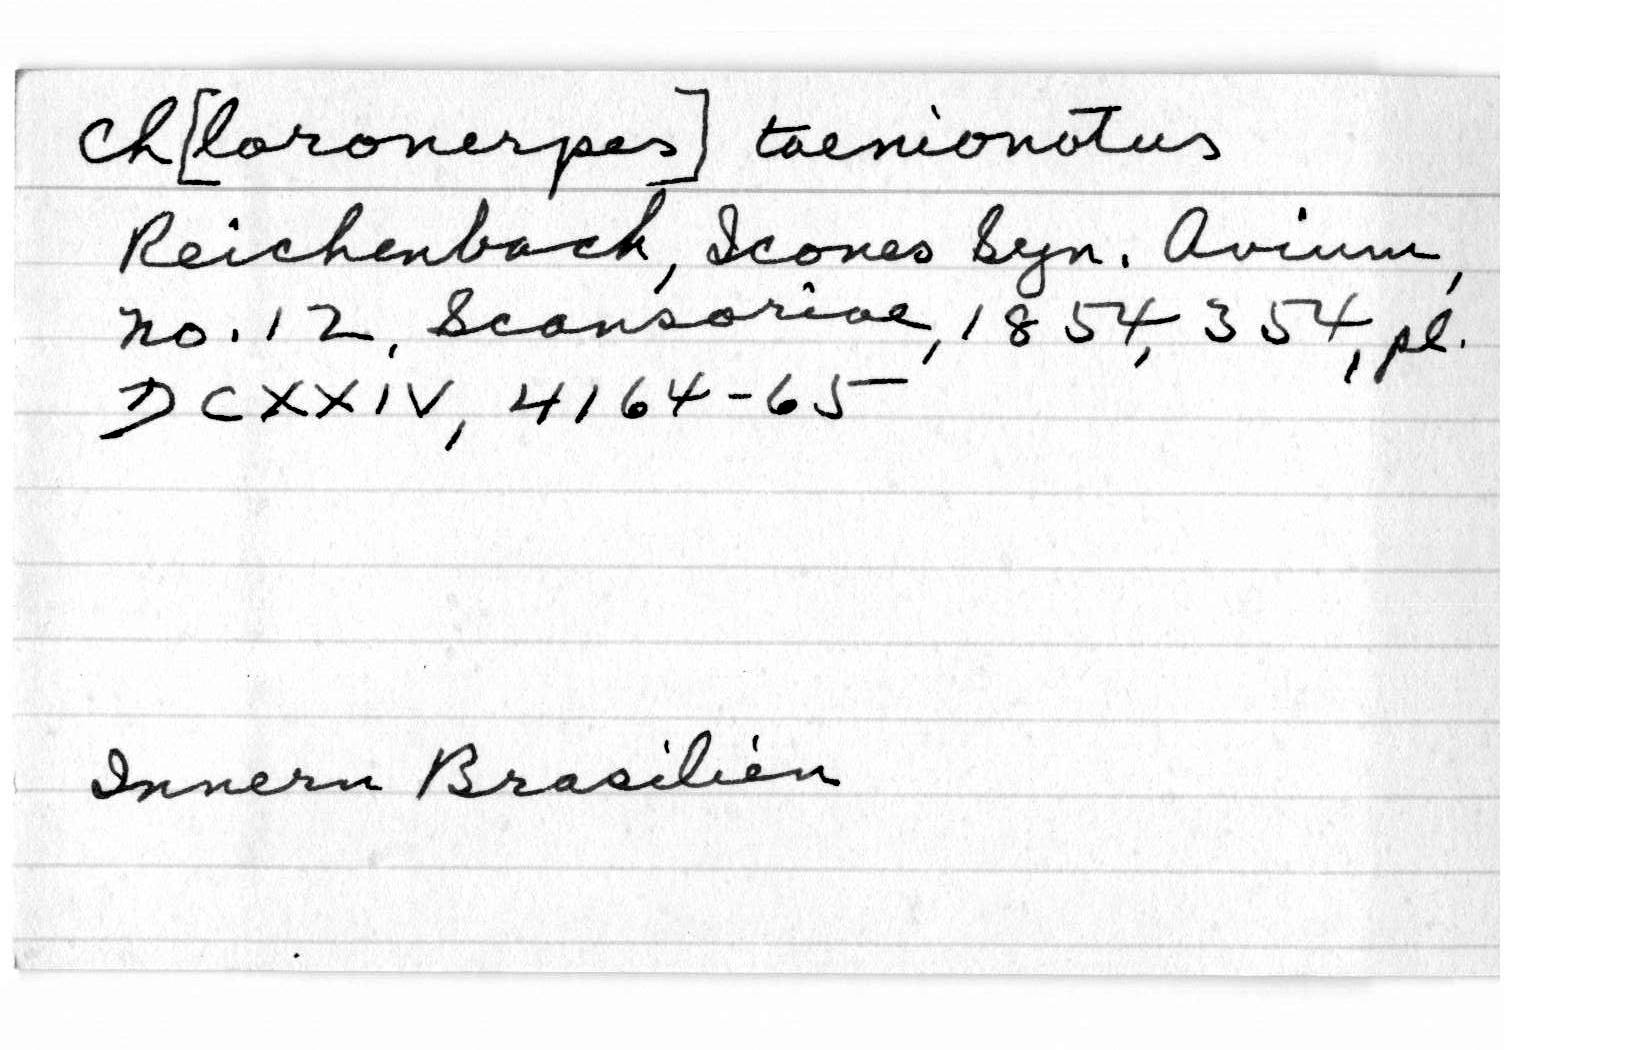 Ch[loronerpes] taenionotus
Reichenbach, Icones Syn. Avium,
no. 12, Scansoriae, 1854, 354, pl.
DCXXIV, 4164-65
Innern Brasilien